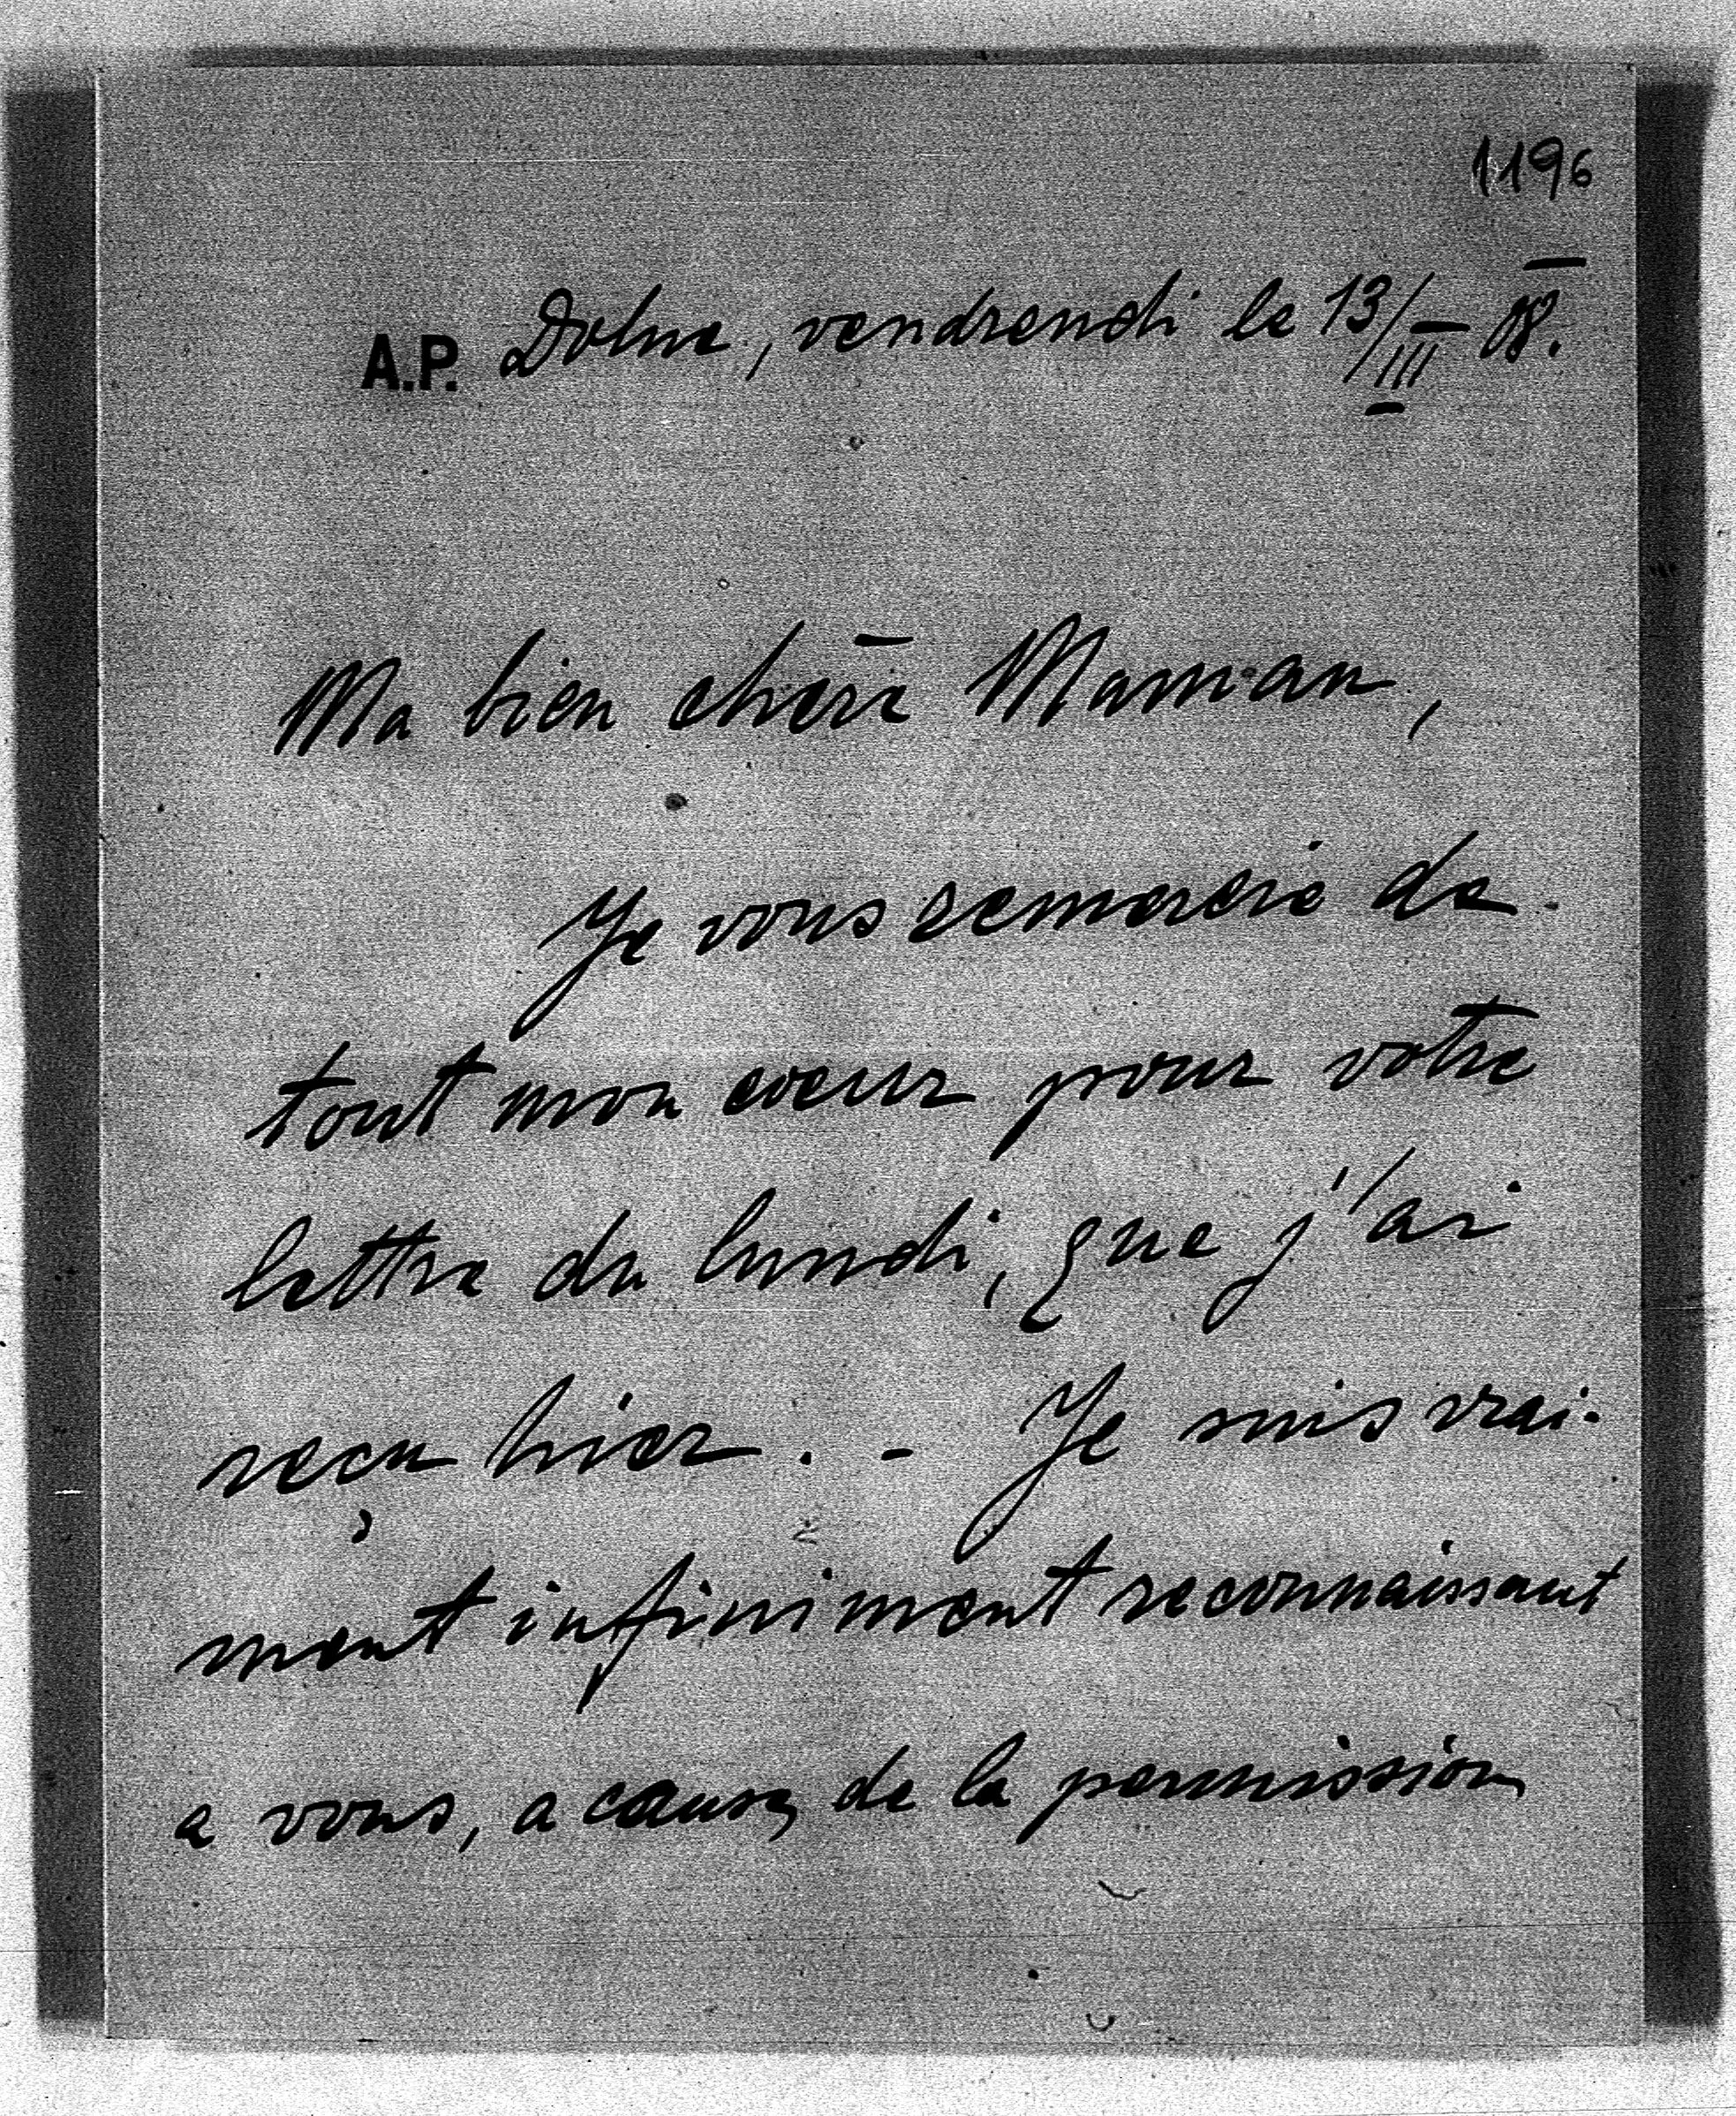 1196
A.P. Dolna, vendrendi le 13/III 08.
Ma bien chère Maman,
Je vous remercie de
tout mon coeur pour votre
lettre du lundi, que j'ai
reçu hier. - Je suis vrai-
ment infiniment reconnaissant
a vous, a cause de la permission